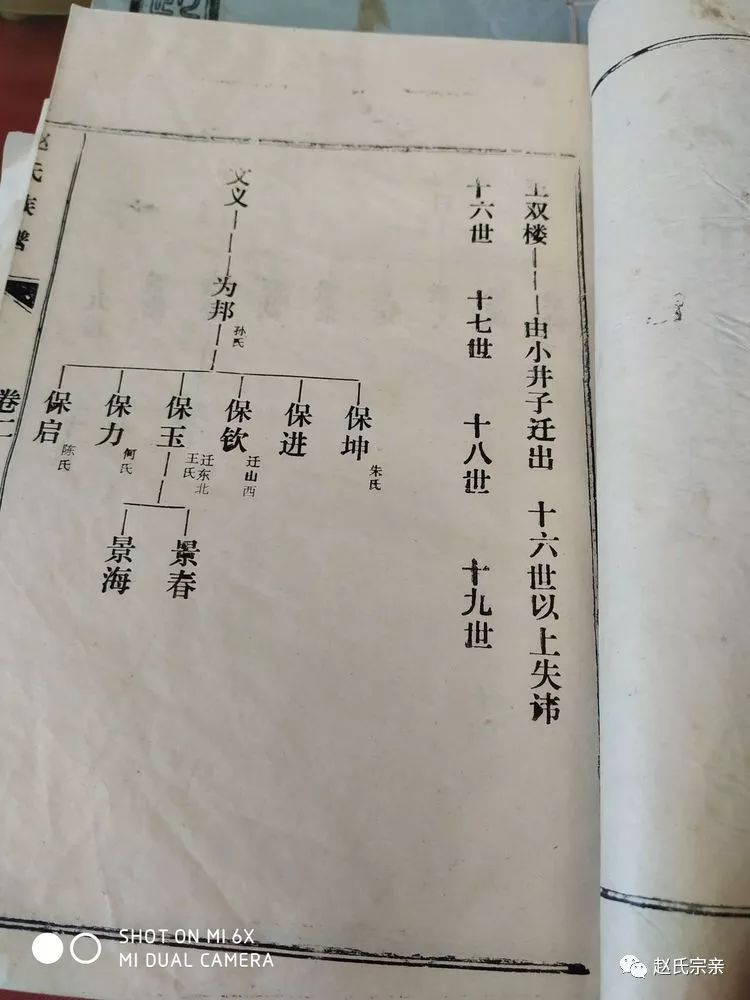 王双楼———由小井子迁出 十六世以上失讳
十六世 十七世 十八世 十九世
文义———为邦
孙氏
保坤
朱氏
保进
保钦
迁山西
保玉
迁东北
王氏
保力
何氏
保启
陈氏
景春
景海
赵氏族谱
卷二
SHOT ON MI 6X
MI DUAL CAMERA
赵氏宗亲